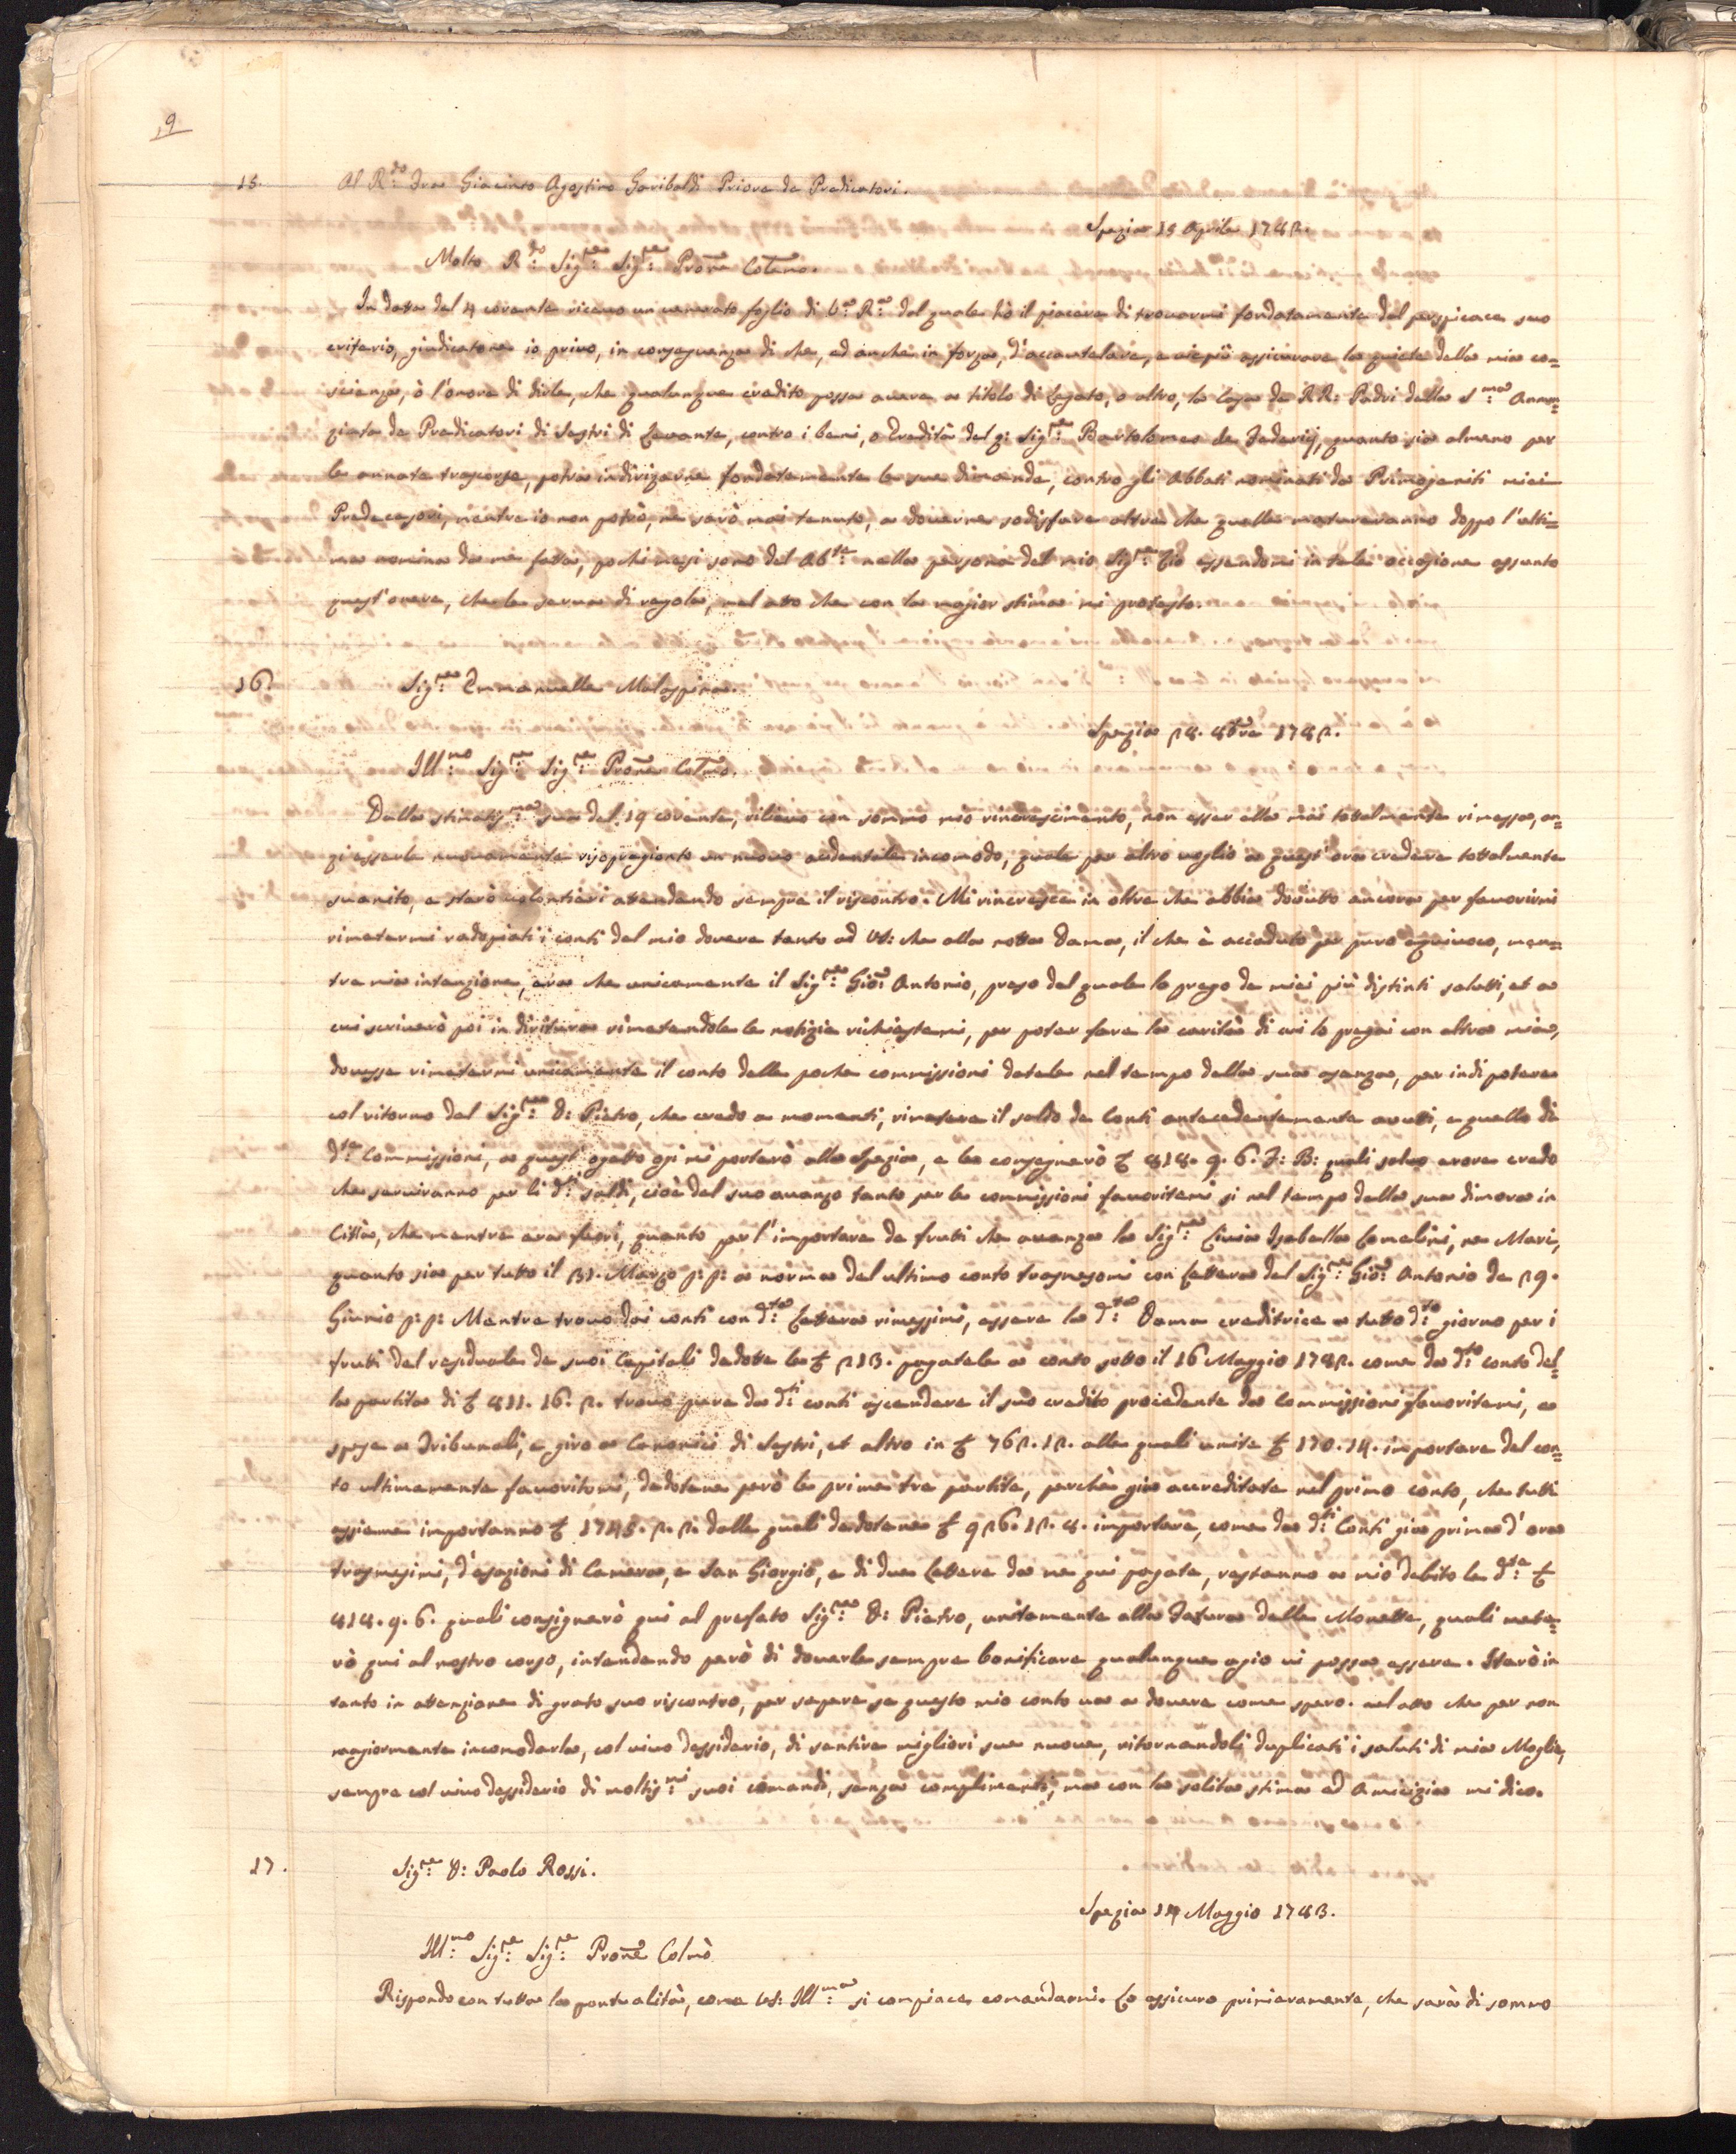 9
15. Al R.do Fra Giacinto Agostino Garibaldi Priore de Predicatori.
Spezia 15 Aprile 1782.
Molto R.do Sig.re Sig.re Prone Colmo.
In data del 4 corente ricevo un venerato foglio di V.a R.a dal quale hò il piacere di trovarmi fondatamente del perspicace suo
criterio, giudicatone io privo, in conseguenza di che, ed anche in forza, d'accautelare, e viepiù assicurare la quiete della mia co=
scienza, ò l'onore di dirle, che qualunque credito possa avere a titolo di Legato, o altro, la Casa de RR: Padri della S.ma Annon=
ziata de Predicatori di Sestri di Levante, contro i beni, o Eredità del q: Sig.re Bartolomeo de Federicj, quanto sia almeno per
le annate trascorse, potrà indirizarne fondatamente le sue dimande, contro gli Abbati nominati da Primogeniti miei
Predecessori, mentre io non potrò, ne sarò mai tenuto, a doverne sodisfare altre che quelle matureranno doppo l'ulti=
ma nomina da me fatta, pochi mesi sono del Ab.te nella persona del mio Sig.re Zio essendomi in tale occasione assunto
quest'onere, che le serva di regola, nel atto che con la magior stima mi protesto.
16. Sig.re Emmanuelle Malaspina.
Spezia 28. 8bre 1782.
Ill.mo Sig.re Sig.re Prone Colmo.
Dalla stimatis.ma sua del 19 corente, rilievo con sommo mio rincrescimento, non esser ella mai totalmente rimessa, an=
zi esserle nuovamente risopragionto un nuovo acidentale incomodo, quale per altro voglio a quest'ora credere totalmente
svanito, e starò volontieri attendendo sempre il riscontro. Mi rincresce in oltre che abbia dovuto ancora per favorirmi
rimetermi radopiati i conti del mio dovere tanto ad VS: che alla notta Dama, il che è accaduto per puro equivoco, men=
tre mia intenzione, era che unicamente il Sig.re Gio: Antonio, preso del quale lo prego de miei più distinti saluti, et a
cui scriverò poi in diritura rimetendole le notizie richiestemi, per poter fare la carità di cui lo pregai con altra mia,
dovesse rimetermi unicamente il conto delle poche commissioni datele nel tempo della sua asenza, per indi potere
col ritorno del Sig.re D: Pietro, che credo a momenti, rimetere il saldo de Conti antecedentemente avuti, e quello di
d.te Commissioni, a quest'ogetto ogi mi porterò alla Spezia, e le consegnerò £ 818. 9. 6. F: B: quali salvo erore credo
che serviranno per li d.ti saldi, cioè del suo avanzo tanto per le commissioni favoritemi si nel tempo della sua dimora in
Città, che mentre era fuori, quanto per l'importare de fruti che avanza la Sig.ra Livia Isabella Lomelini, ne Mari,
quanto sia per tutto il 31. Marzo p: p: a norma del ultimo conto trasmesomi con Lettera del Sig.re Gio: Antonio de 29.
Giunio p: p: Mentre trovo dai conti con d.ta Lettera rimessimi, essere la d.ta Dama creditrice a tutto d.to giorno per i
fruti del residuale de suoi Capitali dedotte le £ 213. pagatele a conto sotto il 16 Maggio 1782. come da d.to conto del=
la partita di £ 811. 16. 2. trovo pure da d.ti conti ascendere il suo credito procedente da Commissioni favoritemi, a
spese a Tribunali, e giro a Canonici di Sestri, et altro in £ 762. 12. alle quali unite £ 170. 14. importare del con=
to ultimamente favoritomi, dedotene però le prime tre partite, perchè già accreditate nel primo conto, che tutti
assieme importanno £ 1745. 2. 2. dalle quali dedotene £ 926. 12. 8. importare, come da d.ti Conti già prima d'ora
trasmesimi, d'esazioni di Camera, e San Giorgio, e di due Lettere da me qui pagate, restanno a mio debito le d.te £
818. 9. 6. quali consignerò qui al prefato Sig.re D: Pietro, unitamente alla Fatura delle Monette, quali mete=
rò qui al nostro corso, intendendo però di doverle sempre bonificare qualunque agio vi possa essere. Starò in
tanto in attenzione di grato suo riscontro, per sapere se questo mio conto va a dovere come spero. nel atto che per non
magiormente incomodarla, col vivo dessiderio, di sentire migliori sue nuove, ritornandoli duplicati i saluti di mia Moglie,
sempre col vivo dessiderio di moltis.mi suoi comandi, senza complimenti, ma con la solita stima ed Amicizia mi dico.
17. Sig.re D: Paolo Rossi.
Spezia 14 Maggio 1783.
Ill.mo Sig.re Sig.re Prone Colmò
Rispondo con tutta la pontualità, come VS: Ill.ma si compiace comandarmi. Lo assicuro primieramente, che sarà di sommo